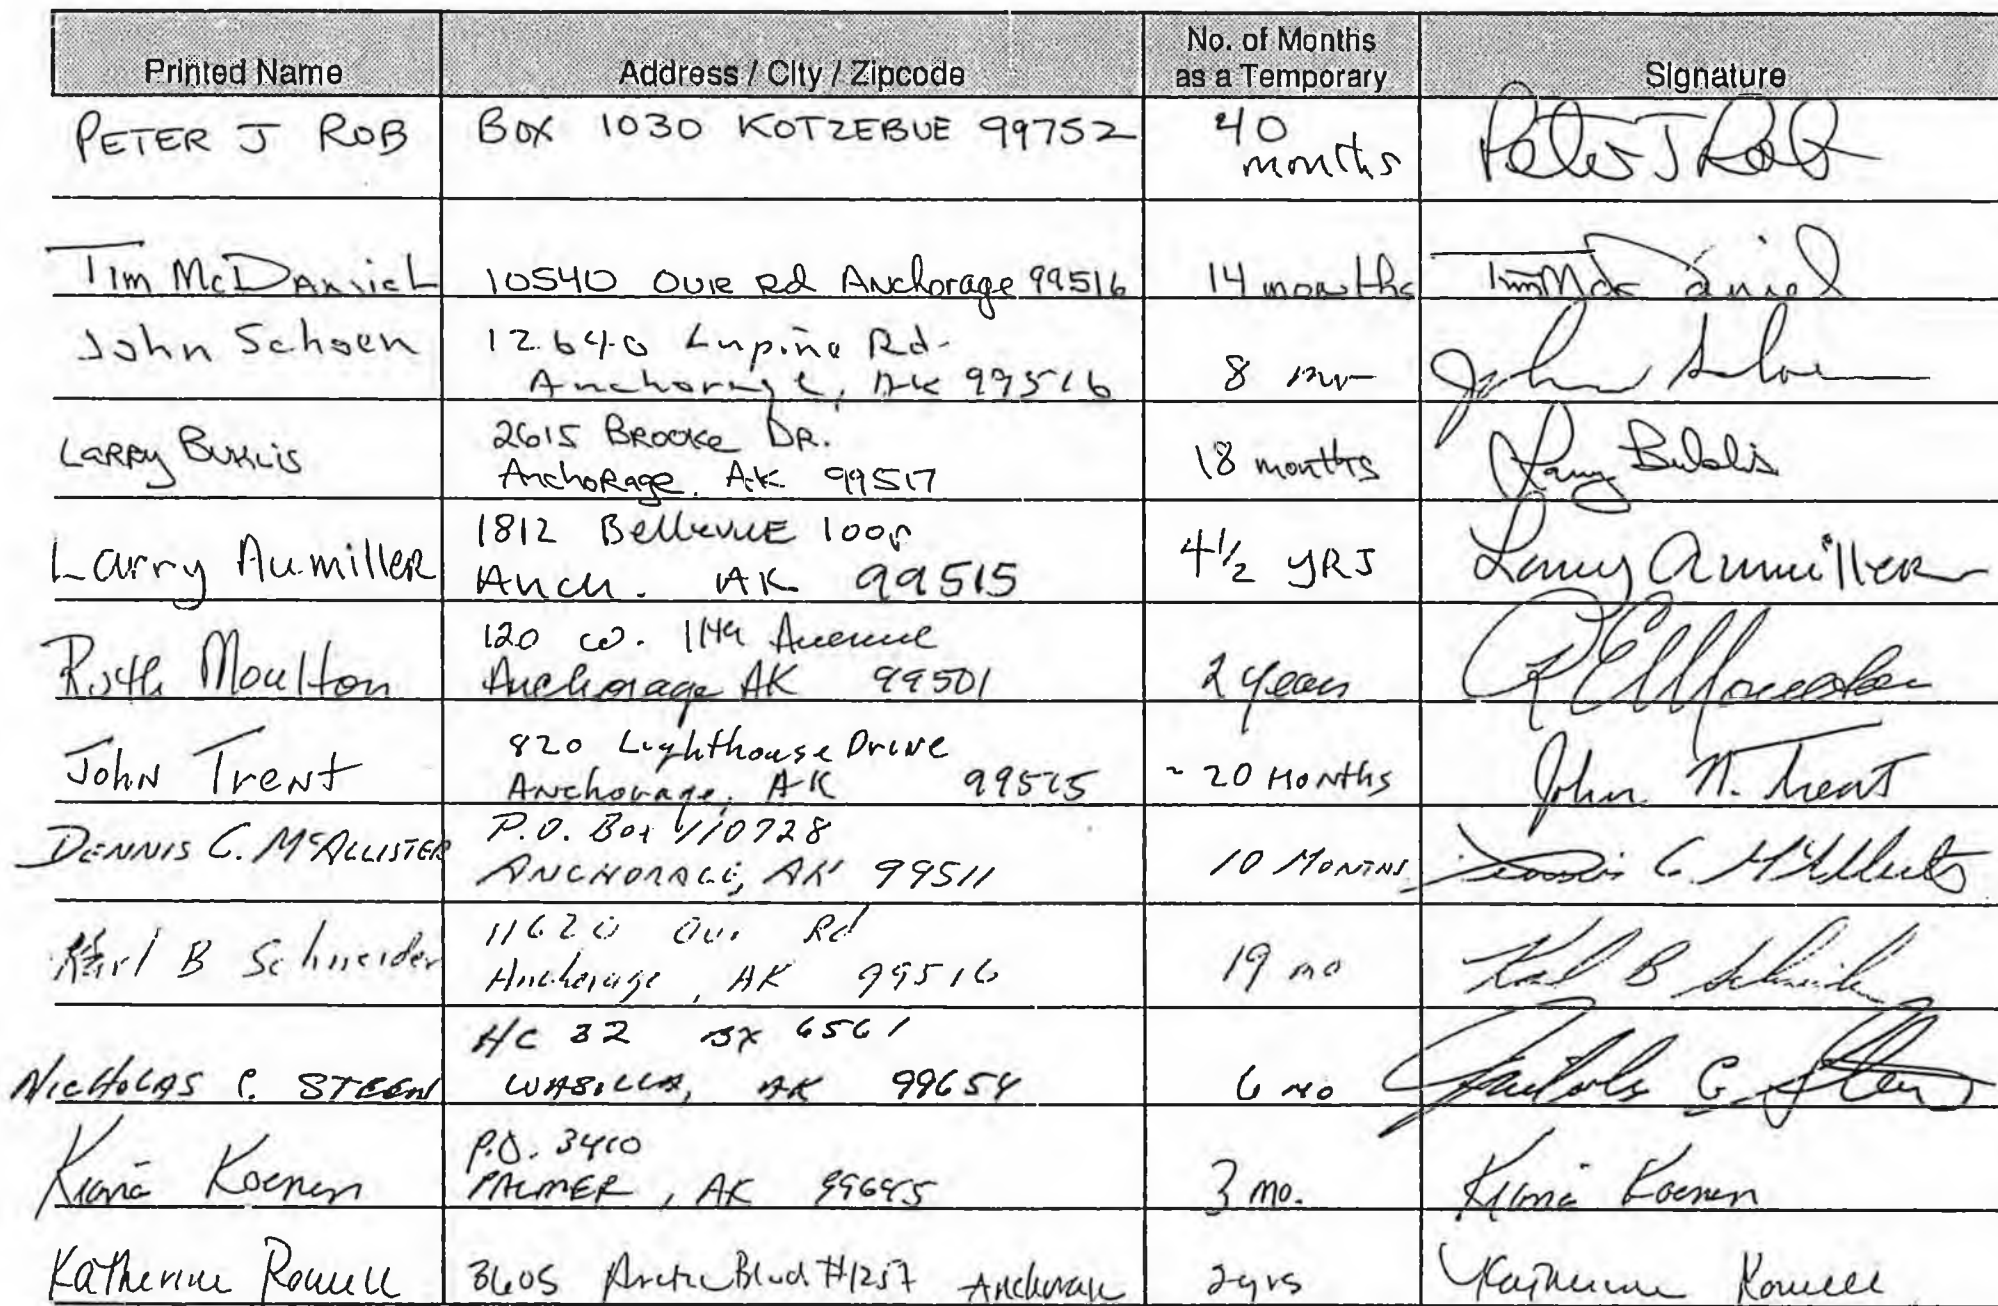 Printed Name
Address / City / Zipcode
No. of Months
as a Temporary
Signature
PETER J ROB
BOX 1030 KOTZEBUE 99752
40
months
Peter J Rob
Tim McDaniel
10540 Our Rd Anchorage 99516
14 months
Tim McDaniel
John Schoen
12640 Lupine Rd.
Anchorage, AK 99516
8 mo
John Schoen
Larry Buklis
2615 Brooke Dr.
Anchorage, AK 99517
18 months
Larry Buklis
Larry Aumiller
1812 Bellevue loop
Anch. AK 99515
4 1/2 yrs
Larry Aumiller
Ruth Moulton
120 W. 11th Avenue
Anchorage AK 99501
2 years
R E Moulton
John Trent
820 Lighthouse Drive
Anchorage, AK 99515
~ 20 Months
John N. Trent
DENNIS C. McALLISTER
P.O. Box 110728
ANCHORAGE, AK 99511
10 MONTHS
Dennis C. McAllister
Karl B Schneider
11620 Our Rd
Anchorage, AK 99516
19 mo
Karl B Schneider
NICHOLAS C. STEEN
HC 32 BX 6561
WASILLA, AK 99654
6 mo
Nicholas C. Steen
Koenen
P.O. 3410
PALMER, AK 99645
3 mo.
Koenen
Katherine Rowell
3605 Arctic Blvd #1257 Anchorage
2 yrs
Katherine Rowell